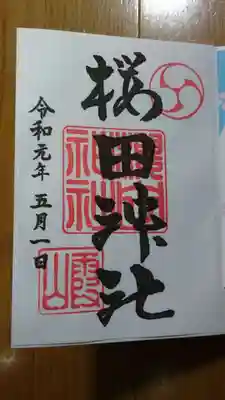 桜田神社
令和元年 五月一日